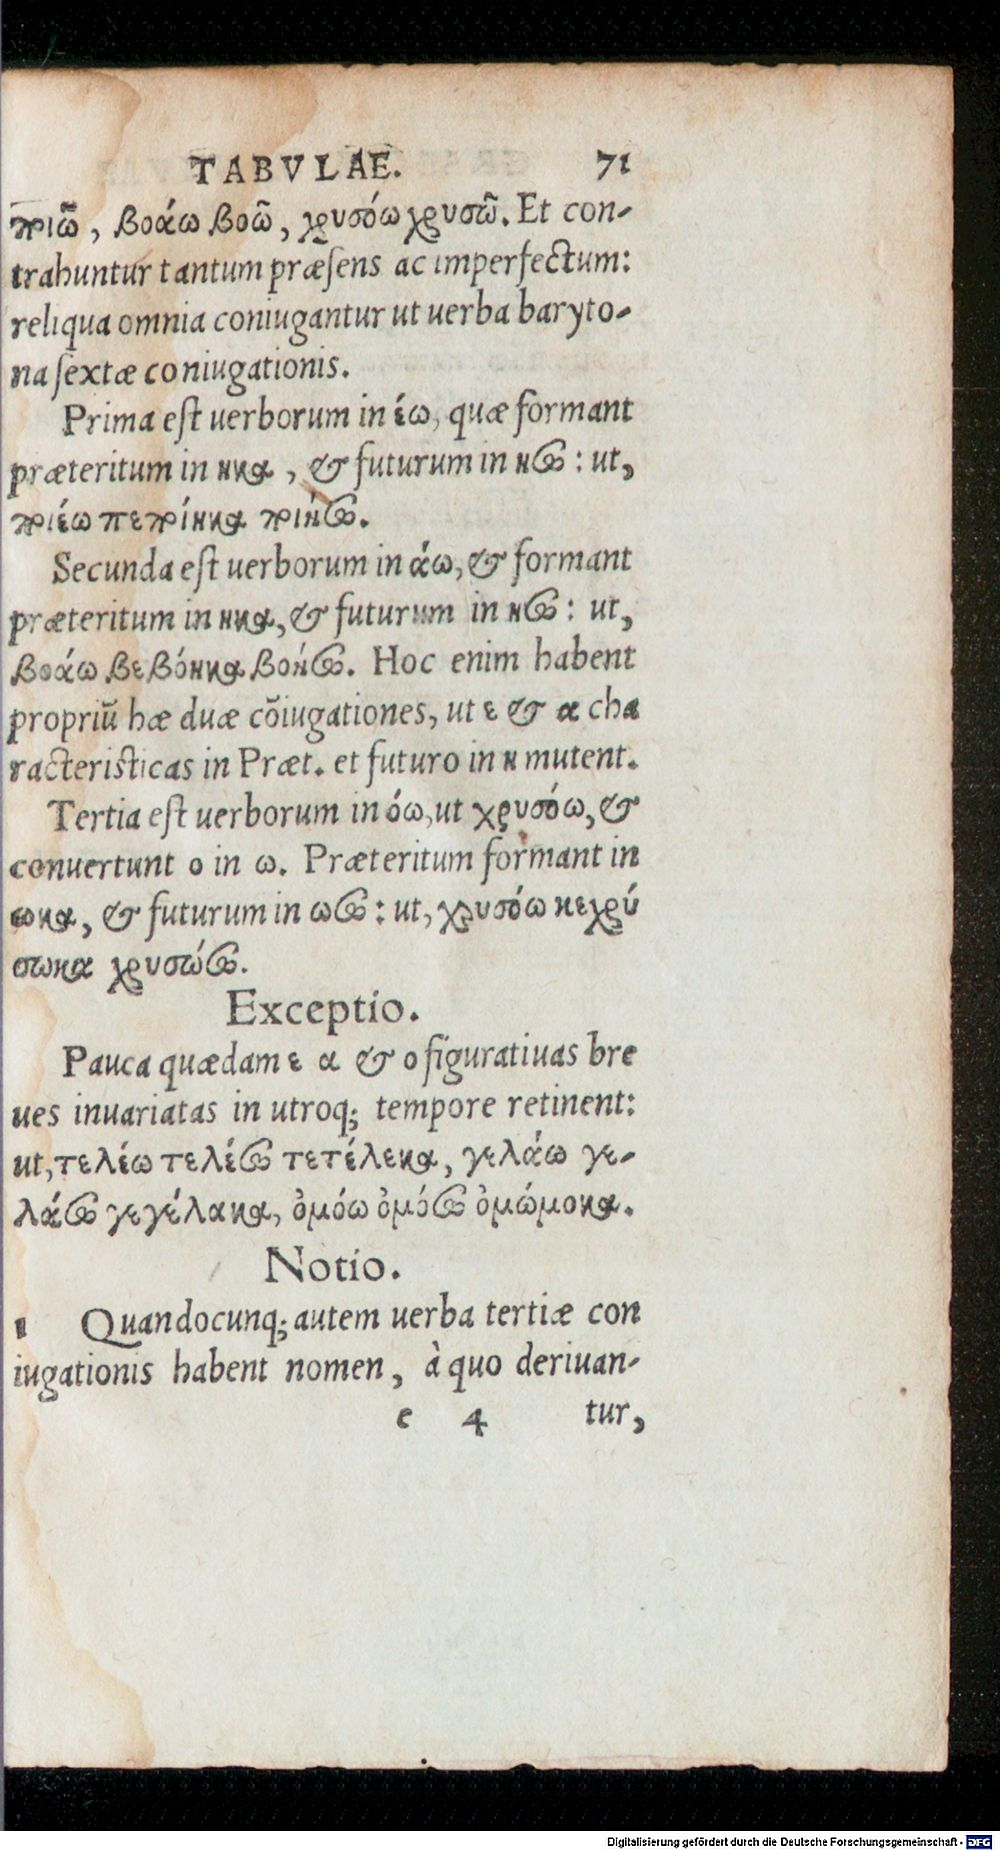 TABVLAE. 71
ποιῶ, βοάω βοῶ, χρυσόω χρυσῶ. Et con-
trahuntur tantum præſens ac imperfectum:
reliqua omnia coniugantur ut uerba baryto-
na ſextæ coniugationis.
Prima eſt uerborum in έω, quæ formant
præteritum in ηκα, & futurum in ησω: ut,
ποιέω πεποίηκα ποιήσω.
Secunda eſt uerborum in άω, & formant
præteritum in ηκα, & futurum in ησω: ut,
βοάω βεβόηκα βοήσω. Hoc enim habent
propriũ hæ duæ cõiugationes, ut ε & α cha
racteristicas in Præt. et futuro in η mutent.
Tertia eſt uerborum in όω, ut χρυσόω, &
conuertunt ο in ω. Præteritum formant in
ωκα, & futurum in ωσω: ut, χρυσόω κεχρύ
σωκα χρυσώσω.
Exceptio.
Pauca quædam ε α & ο figuratiuas bre
ues inuariatas in utroq; tempore retinent:
ut, τελέω τελέσω τετέλεκα, γελάω γε-
λάσω γεγέλακα, ὀμόω ὀμόσω ὀμώμοκα.
Notio.
1 Quandocunq; autem uerba tertiæ con
iugationis habent nomen, à quo deriuan-
e 4 tur,
Digitalisierung gefördert durch die Deutsche Forschungsgemeinschaft - DFG